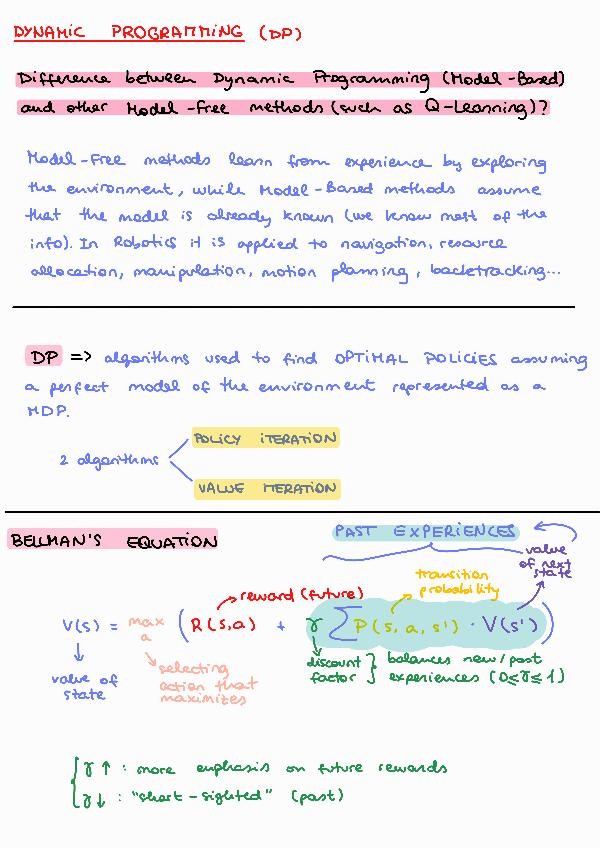 DYNAMIC PROGRAMMING (DP)
Difference between Dynamic Programming (Model-Based)
and other Model-Free methods (such as Q-Learning)?
Model-Free methods learn from experience by exploring
the environment, while Model-Based methods assume
that the model is already known (we know most of the
info). In Robotics it is applied to navigation, resource
allocation, manipulation, motion planning, backtracking...
DP => algorithms used to find OPTIMAL POLICIES assuming
a perfect model of the environment represented as a
MDP.
POLICY ITERATION
2 algorithms
VALUE ITERATION
BELLMAN'S EQUATION
PAST EXPERIENCES
value
of next
state
transition
probability
reward (future)
V(s) = max a ( R(s,a) + γ Σ P(s, a, s') · V(s') )
value of
state
selecting
action that
maximizes
discount
factor } balances new/past
experiences (0≤γ≤1)
{ γ ↑ : more emphasis on future rewards
γ ↓ : "short-sighted" (past)